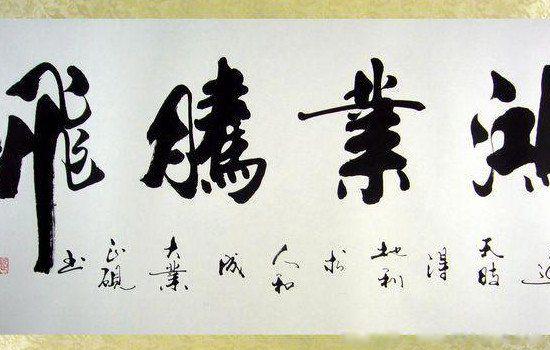 鴻業騰飛
天時得地利於人和成大業 正硯书